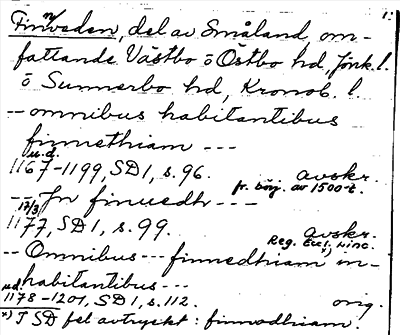 1.
Finnveden, del av Småland, om-
fattande Västbo o Östbo hd, Jönk. l.
o Sunnerbo hd, Kronob. l.
-- omnibus habitantibus
finnethiam ---
u.d.
1167-1199, SD 1, s. 96. avskr.
fr. börj. av 1500-t.
--- Jn finuedh ---
17/3
1177, SD 1, s. 99. avskr.
Reg. Eccl. Linc.
-- Omnibus --- finnedhiam x) in-
habitantibus ---
u.d.
1178-1201, SD 1, s. 112. orig.
x) I SD fel avtryckt: finnodhiam.